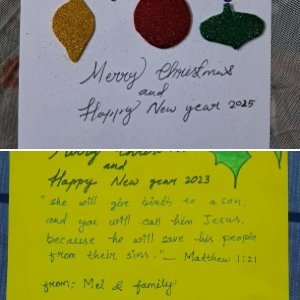 Merry Christmas
and
Happy New year 2025
Merry Christmas
and
Happy New year 2023
"she will give birth to a son,
and you will call him Jesus,
because he will save his people
from their sins." — Matthew 1:21
from: Mel & family